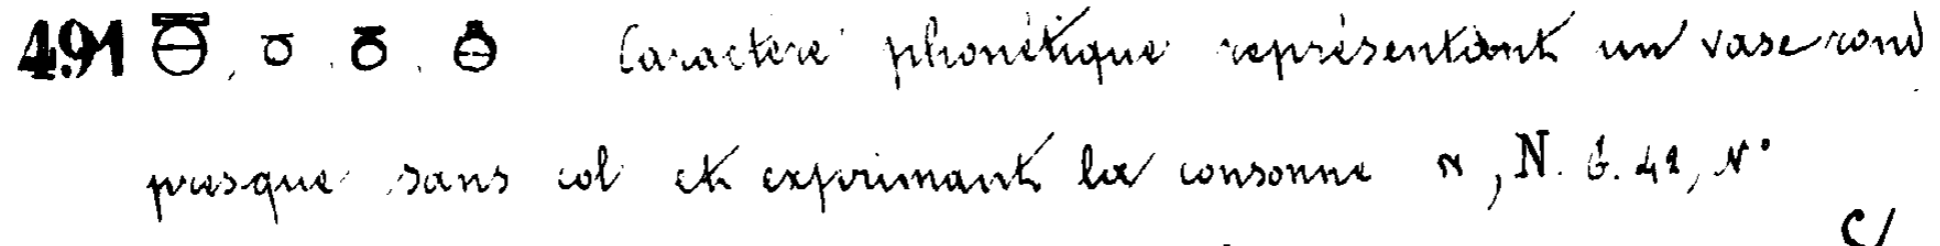 491 , . . Caractère phonétique représentant un vase rond
presque sans col et exprimant la consonne ⲛ, N. G. 42, N°